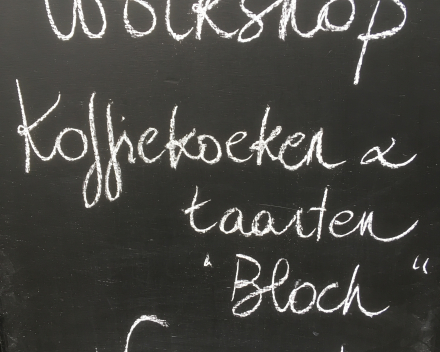 Workshop
Koffiekoeken &
taarten
"Bloch"